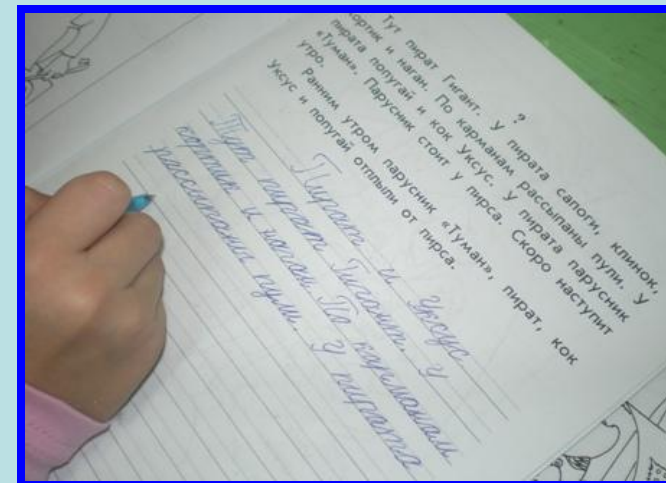 ?
Тут пират Гигант. У пирата сапоги, клинок,
кортик и наган. По карманам рассыпаны пули. У
пирата попугай и кок Уксус. У пирата парусник
«Туман». Парусник стоит у пирса. Скоро наступит
утро.
Ранним утром парусник «Туман», пират, кок
Уксус и попугай отплыли от пирса.
Пират и Уксус
Тут пират Гигант. У
кортик и наган. По карманам
рассыпаны пули. У пирата